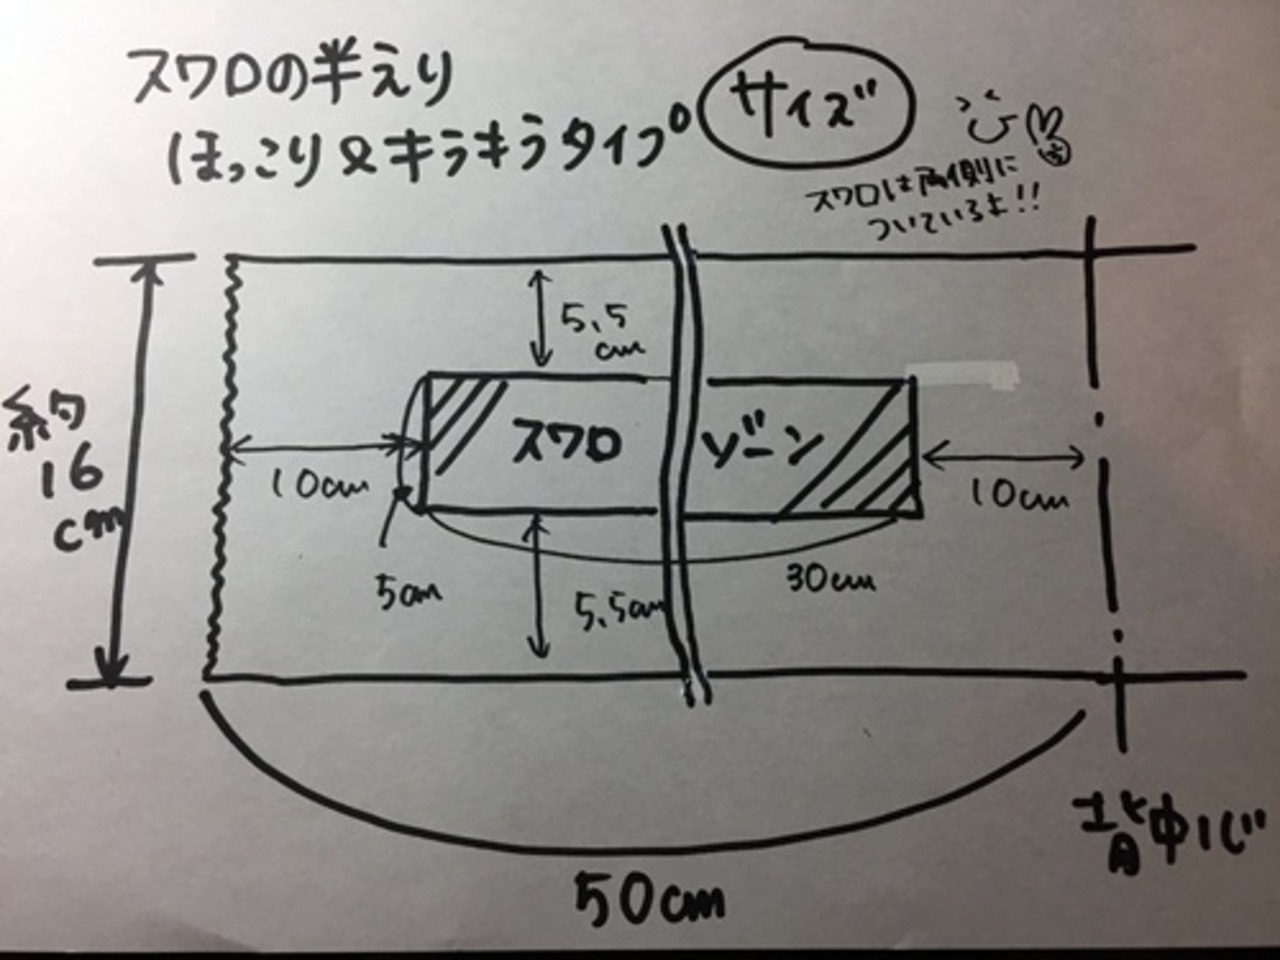 スワロの半えり
ほっこり&キラキラタイプ
サイズ
スワロは両側に
ついているよ!!
5.5
cm
約
16
cm
スワロ
ゾーン
10cm
10cm
5cm
5.5cm
30cm
50cm